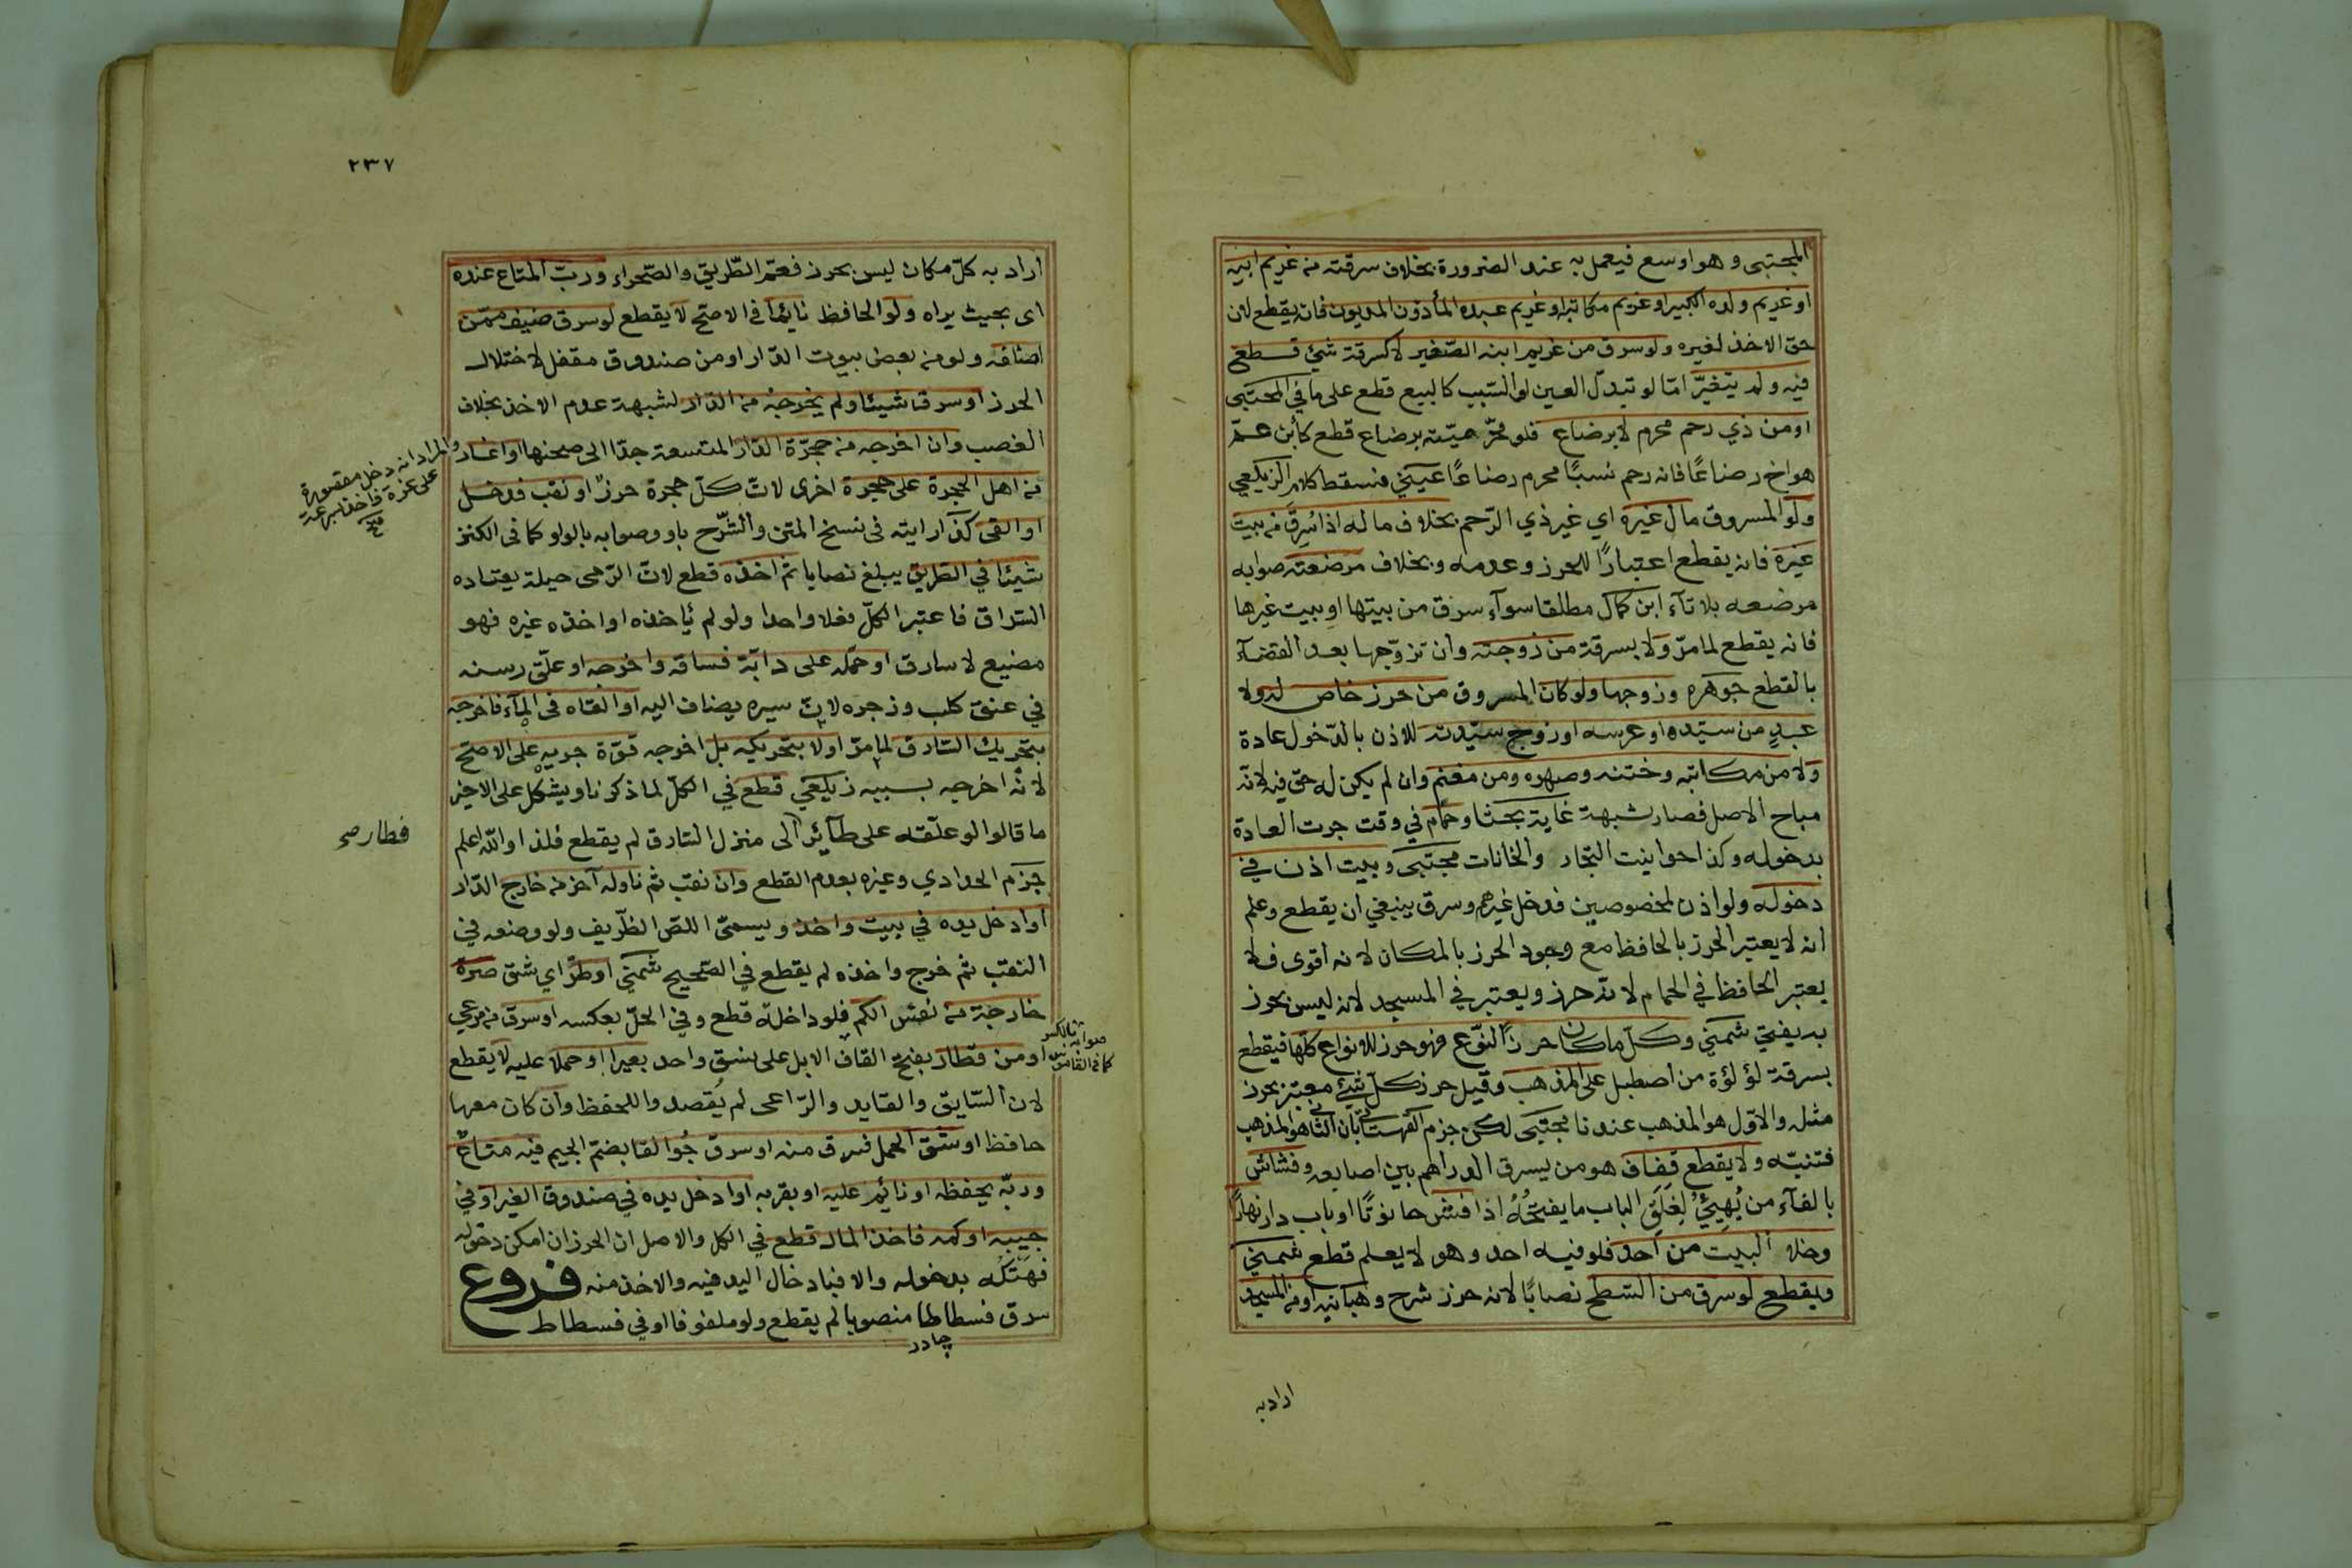 المجتبى وهو اوسع فيعمل به عند الضرورة بخلاف سرقته من غريم ابيه
او غريم ولده الكبير او غريم مكاتبه او غريم عبده المأذون المديون فانه يقطع لان
حق الاخذ لغيره ولو سرق من غريم ابنه الصّغير لا كسرقة شئ قطع
فيه ولم يتغيّر امّا لو تبدّل العين او السّبب كالبيع قطع على ما في المجتبى
او من ذي رحم محرم لا برضاع فلو محرّميّته برضاع قطع كأبن عمّ
هو اخ رضاعًا فانه رحم نسبًا محرم رضاعًا عينيّ فسقط كلام الزيلعي
ولو المسروق مال غيره اي غير ذي الرّحم بخلاف ماله اذا سُرِقَ من بيت
غيره فانه يقطع اعتبارًا للحرز وعدمه وبخلاف مرضعته صوابه
مرضعه بلا تآء ابن كمال مطلقا سوآء سرق من بيتها او بيت غيرها
فانه يقطع لما مرّ ولا بسرقة من زوجته وان تزوّجها بعد القضآء
بالقطع جوهره وزوجها ولو كان المسروق من حرز خاص له ولا
عبدٍ من سيّده او عرسه او زوج سيّدته للاذن بالدّخول عادة
ولا من مكاتبه وختنه وصهره ومن مغنم وان لم يكن له حق فيه لانّه
مباح الاصل فصار شبهة غاية بحثا وحمّام في وقت جرت العادة
بدخوله وكذا حوانيت التجّار والخانات مجتبى وبيت اذن في
دخوله ولو اذن لمخصوصين فدخل غيرهم وسرق ينبغي ان يقطع وعلم
انه لا يعتبر الحرز بالحافظ مع وجود الحرز بالمكان لانه أقوى فلا
يعتبر الحافظ في الحمام لانّه حرز ويعتبر في المسجد لانه ليس بحرز
به يفتيّ شمنيّ وكلّ ما كان حرزًا النّوع فهو حرز للانواع كلّها فيقطع
بسرقة لؤلؤة من اصطبل على المذهب وقيل حرز كلّ شئ معتبر بحرز
مثله والاوّل هو المذهب عندنا مجتبى لكن جزم القهستاني بأن الثاني هو المذهب
فتنبّه ولا يقطع قفاف هو من يسرق الدراهم بين اصابعه وفشاش
بالفآء من يُهيئُ لِغلَقِ الباب ما يفتحُهُ اذا فش حانوتًا او باب دار نهارًا
وخلا البيت من أحد فلو فيه احد وهو لا يعلم قطع شمنيّ
ويقطع لو سرق من السّطح نصابًا لانه حرز شرح وهبانيه او من المسجد
اراد به
٢٣٧
اراد به كلّ مكان ليس بحرز فعمّ الطّريق والصّحراء وربّ المتاع عنده
اى بحيث يراه ولو الحافظ نائمًا في الاصحّ لا يقطع لو سرق ضيف ممّن
اضافه ولو من بعض بيوت الدّار او من صندوق مقفل لاختلال
الحرز او سرق شيئا ولم يخرجه من الدّار لشبهة عدم الاخذ بخلاف
الغصب وان اخرجه من حجرة الدّار المتّسعة جدّا الى صحنها او اغار
من اهل الحجرة على حجرة اخرى لانّ كلّ حجرة حرزٌ او نقب فدخل
او القى كذا رايته في نسخ المتن والشّرح باو وصوابه بالواو كما في الكنز
شيئًا في الطّريق يبلغ نصابا ثمّ اخذه قطع لانّ الرّمى حيلة يعتاده
السّراق فاعتبر الكلّ فعلا واحدا ولو لم يأخذه او اخذه غيره فهو
مضيع لا سارق او حمّله على دابّة فساقه واخرجه او علّق رسنه
في عنق كلب وزجره لانّ سيره يضاف اليه او القاه في المآء فاخرجه
بتحريك السّارق لما مرّ اولا بتحريكه بل اخرجه قوّة جريه على الاصحّ
لانّه اخرجه بسببه زيلعي قطع في الكلّ لما ذكرنا ويشكل على الاخير
ما قالوا لو علّقه على طآئر الى منزل السّارق لم يقطع فلذا واللّه اعلم
جزم الحدادي وغيره بعدم القطع وان نقب ثم ناوله آخر من خارج الدّار
او ادخل يده في بيت واخذ ويسمّى اللصّ الظّريف ولو وضعه في
النقب ثم خرج واخذه لم يقطع في الصّحيح شمنّي او طرّ اي شق صرة
خارجة من نفس الكم فلو داخلة قطع وفي الحلّ بعكسه او سرق من مرعي
او من قطار بفتح القاف الابل على نسق واحد بعيرا او حملا عليه لا يقطع
لان السّايق والقايد والرّاعى لم يُقصدوا للحفظ وان كان معها
حافظ او شق الحمل فسرق منه او سرق جُوالقا بضمّ الجيم فيه متاعٌ
وربّه يحفظه او نائم عليه او بقربه او ادخل يده في صندوق الغير او في
جيبه او كمه فاخذ المال قطع في الكل والاصل ان الحرز ان امكن دخوله
فهتكه بدخوله والا فبادخال اليد فيه والاخذ منه فروع
سرق فسطاطا منصوبا لم يقطع ولو ملفوفا او في فسطاط
والمراد انه دخل مقصورة
على غرة فاخذ بسرعة
فطار صح
صوابه بالكسر
كما في القاموس
چادر